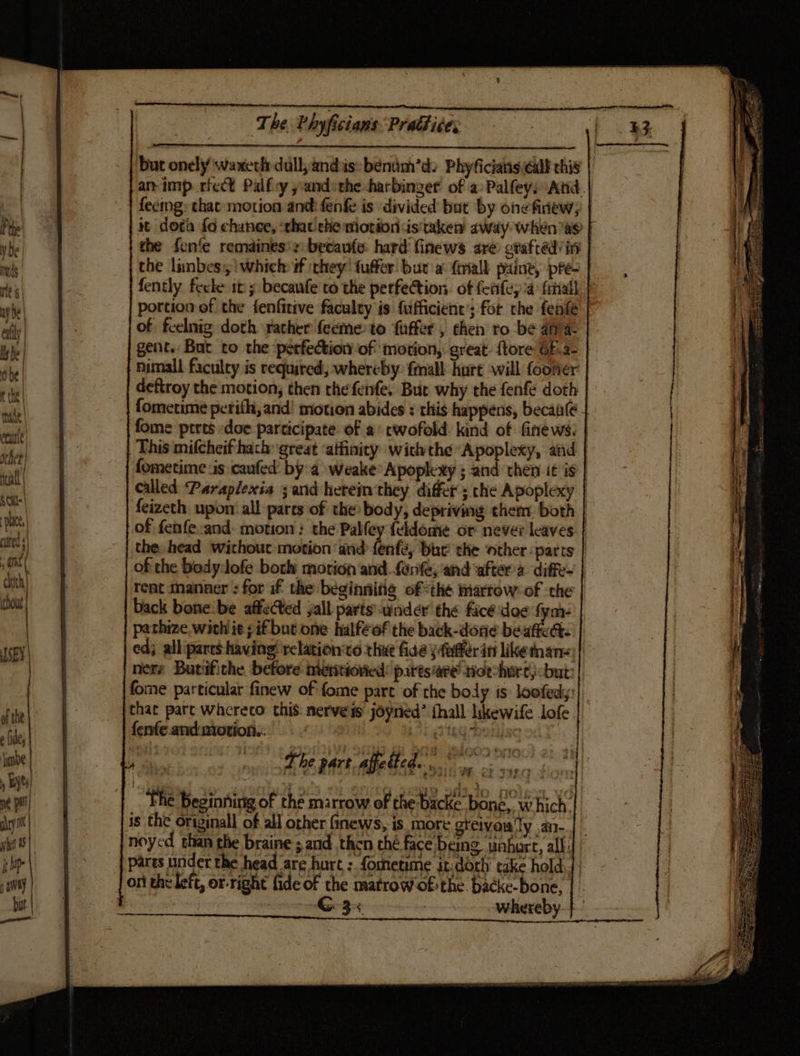 The Phyſicians Practices 23
but onely waxeth dull, and is benum'd. Phyſicians call this
an imp rfect Palſ y, and the harbinger of a Palſey. And
ſeeing that motion and ſenſe is divided but by one ſinew,
it doth ſo chance, that the motion is taken away when as
the ſenſe remaines: becauſe hard ſinews are grafted in
the limbes, which if they ſuffer but a ſmall paine, pre-
ſently ſeeke it; becauſe to the perfection of ſenſe, a ſmall
portion of the ſenſitive faculty is ſufficient; for the ſenſe
of feelnig doth rather ſeeme to ſuffer, then to be an a-
gent. But to the perfection of motion, great ſtore of a-
nimall faculty is required, whereby ſmall hurt will ſooner
deſtroy the motion, then the ſenſe. But why the ſenſe doth
ſometime periſh, and motion abides: this happens, becauſe
ſome parts doe participate of a twofold kind of ſinews.
This miſcheif hath great affinity with the Apoplexy, and
ſometime is cauſed by a weake Apoplexy; and then it is
called Paraplexia; and herein they differ; the Apoplexy
ſeizeth upon all parts of the body, depriving them both
of ſenſe and motion: the Palſey ſeldome or never leaves
the head without motion and ſenſe, but the other parts
of the body loſe both motion and ſenſe, and after a diffe-
rent manner: for if the beginning of the marrow of the
back bone be affected, all parts under the face doe ſym-
pathize with it; if but one halfe of the back-bone be affect-
ed, all parts having relation to that ſide, ſuffer in like man-
ner. But if the before mentioned parts are not hurt, but
ſome particular ſinew of ſome part of the body is looſed,
that part whereto this nerve is joyned' ſhall likewiſe loſe
ſenſe and motion.
The part affected.
The beginning of the marrow of the backe bone, which
is the originall of all other ſinews, is more greivouſly an-
noyed than the braine; and then the face being unhurt, all
parts under the head are hurt: ſometime it doth take hold
on the left, or right ſide of the marrow of the backe-bone,
C 3 whereby